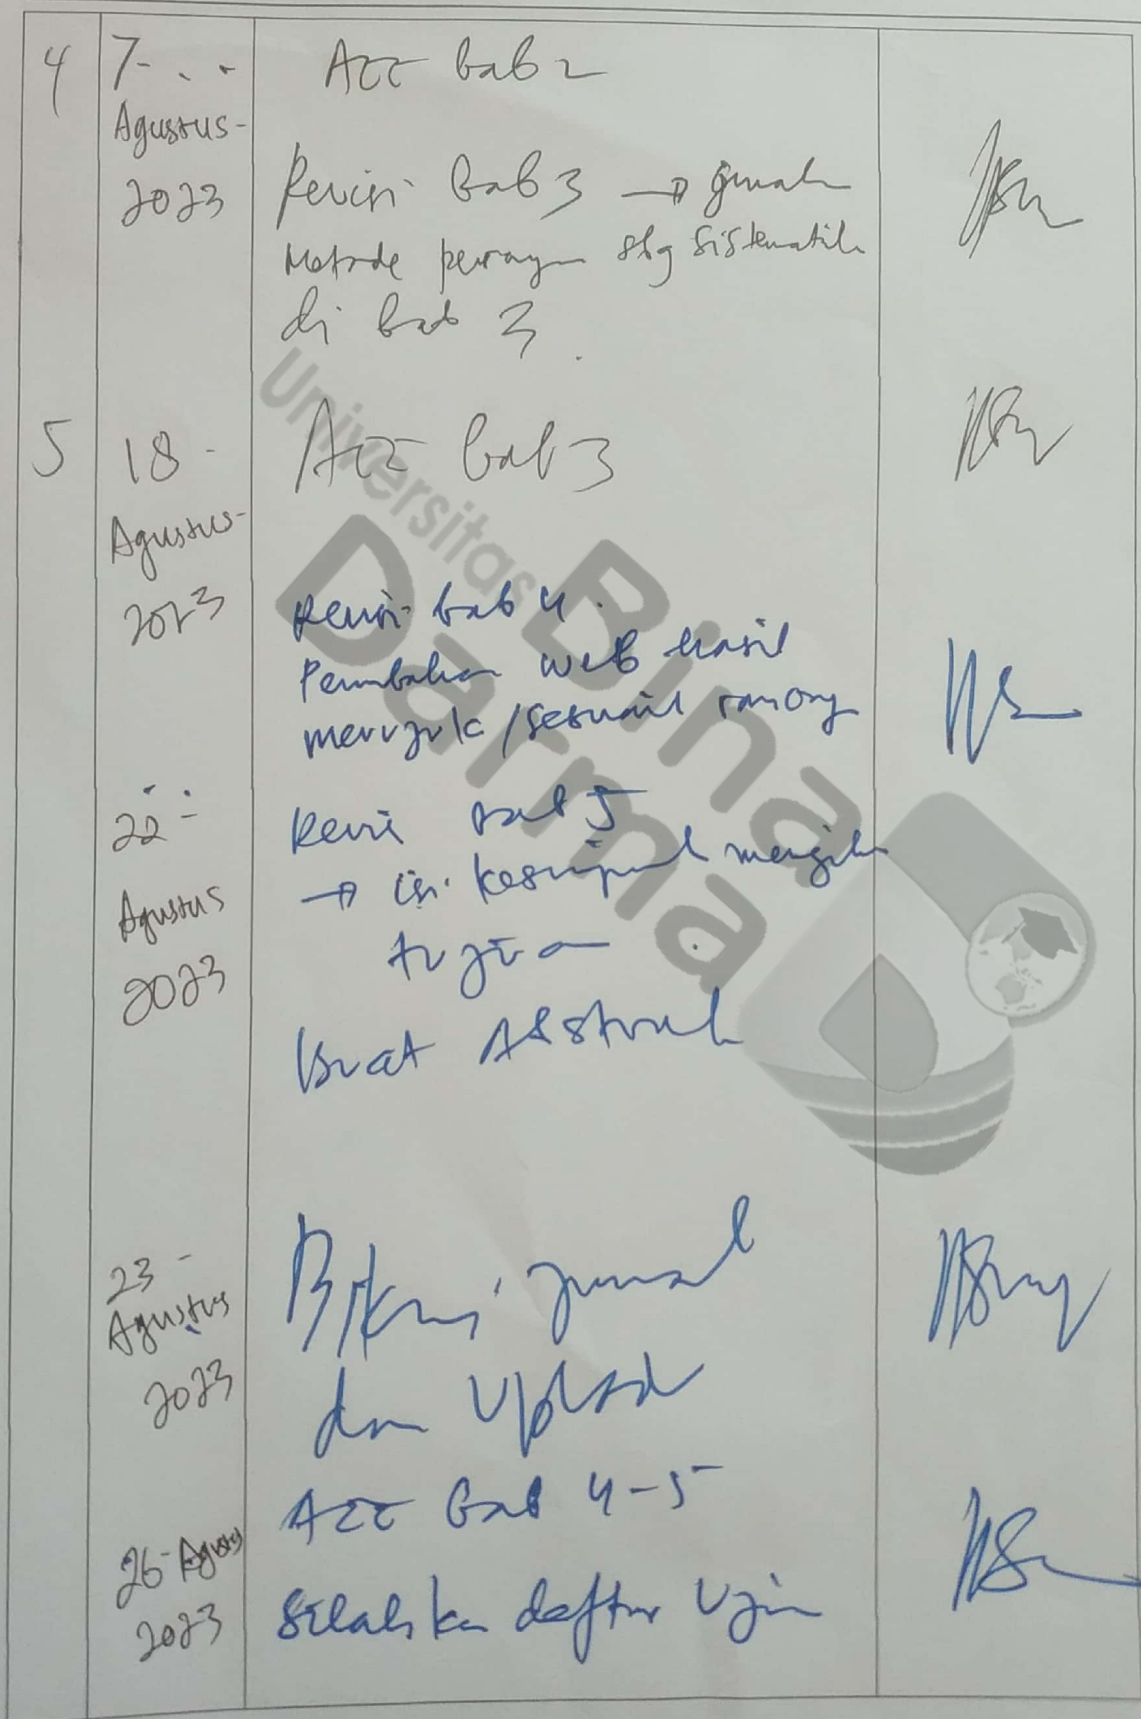 4
7 -
Agustus -
2023
Acc bab 2
Revisi bab 3 → gunakan
Metode perayn sbg sistematik
di bab 3.
5
18 -
Agustus -
2023
Acc bab 3
Revisi bab 4.
Pembahasan web hasil
merujuk / sesuai rancang
22 -
Agustus
2023
Revisi bab 5
→ isi kesimpul mengik
tujuan
Buat Abstrak
23 -
Agustus
2023
jurnal
dan Upload
26 - Agustus
2023
Acc bab 4-5
Silahkan daftar Ujian
Universitas
Bina
Darma